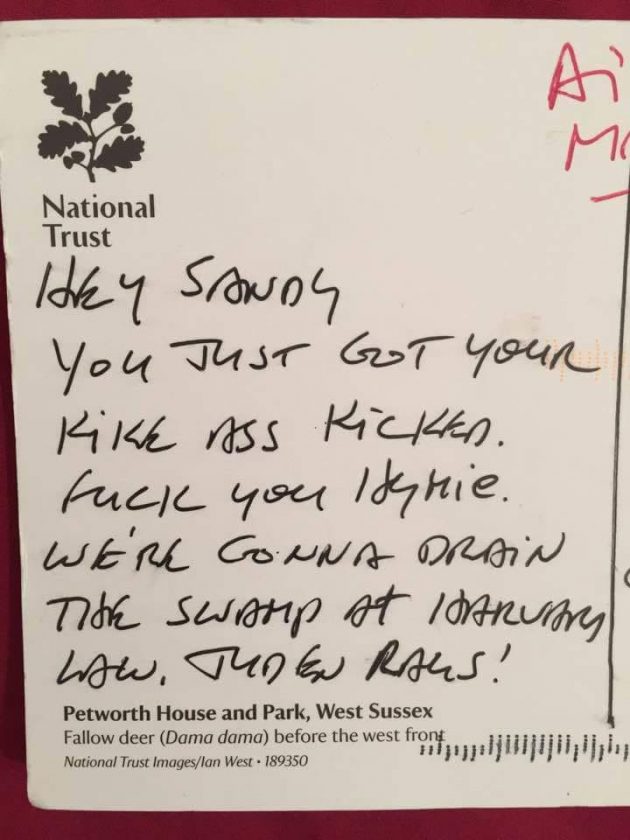 Ai
Mc
National
Trust
HEY SANDY
YOU JUST GOT YOUR
KIKE ASS KICKED.
FUCK YOU HYMIE.
WE'RE GONNA DRAIN
THE SWAMP AT HARVARD
LAW. JUDEN RAUS!
Petworth House and Park, West Sussex
Fallow deer (Dama dama) before the west front
National Trust Images/Ian West • 189350